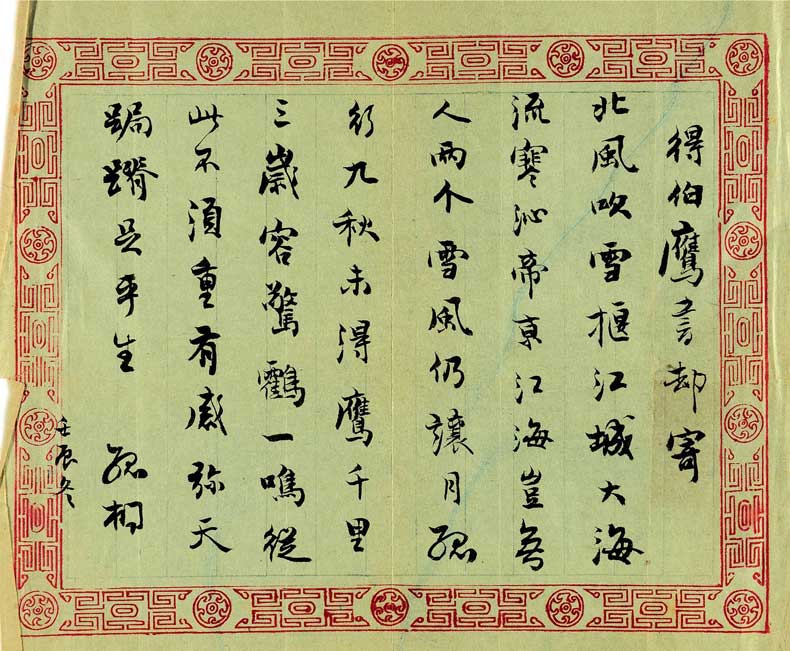 得伯鹰書却寄
北風吹雪捱江城大海
流寒沁帝京江海豈無
人兩个雪風仍讓月孤
行九秋未得鷹千里
三歲容驚鸖一鳴從
此不須重有感弥天
跼蹐是平生 孤桐
壬辰冬